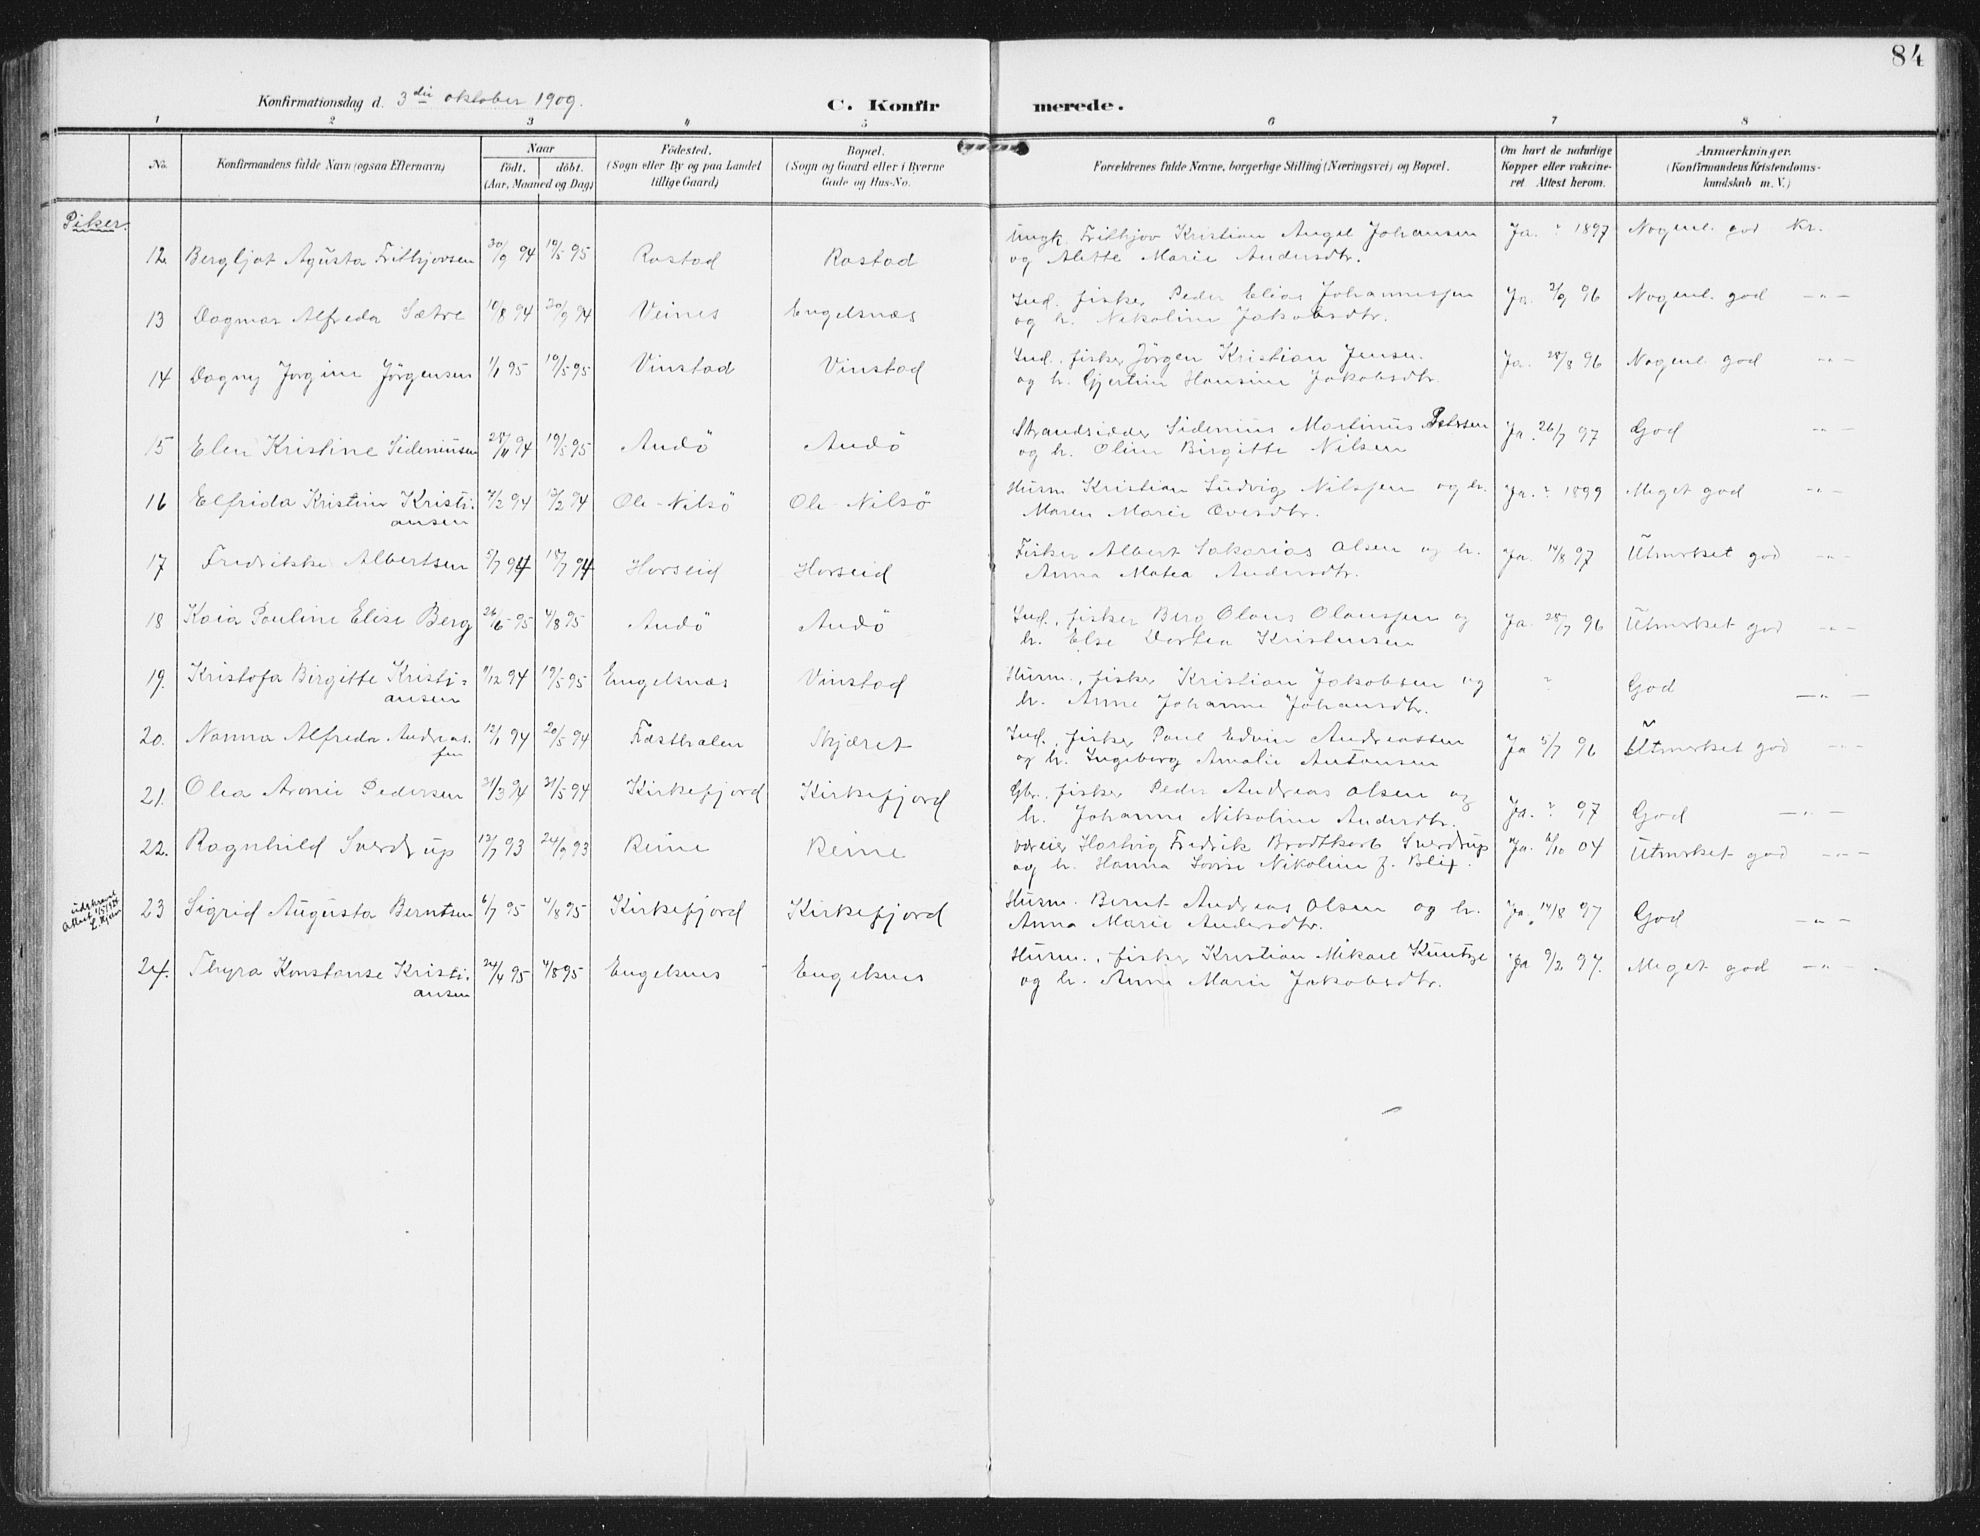 84
Konfirmationsdag d. 3die oktober 1909.
C. Konfirmerede.
1 2 3 4 5 6 7 8
No. Konfirmandens fulde Navn (ogsaa Efternavn) Naar født. døbt. (Aar, Maaned og Dag) Fødested. (Sogn eller By og paa Landet tillige Gaard) Bopæl. (Sogn og Gaard eller i Byerne Gade og Hus-No. Forældrenes fulde Navne, borgerlige Stilling (Næringsvei) og Bopæl. Om havt de naturlige Kopper eller vakcineret Attest herom. Anmærkninger. (Konfirmandens Kristendomskundskab m. V.)
Piker.
12 Bergljot Agusta Frithjovsen 30/9 94 19/5 95 Rostad Rostad Ungk. Frithjov Kristian Angel Johansen Ja. ? 1897 Nogenl. god Kr.
og Alette Marie Andersdtr.
13 Dagmar Alfreda Sætre 10/8 94 30/9 94 Veines Engelsnæs Ind. fisker Peder Elias Johannessen Ja 2/9 96 Nogenl. god —"—
og h. Nikoline Jakobsdtr.
14 Dagny Jorgine Jörgensen 1/1 95 19/5 95 Vinstad Vinstad Ind. fisker Jörgen Kristian Jensen Ja. 28/8 96 Nogenl. god —"—
og h. Gjertine Hansine Jakobsdtr.
15 Elen Kristine Sideniusen 28/11 94 19/5 95 Andö Andö Strandsidder Sidenius Martinus Petersen Ja. 26/7 97 God —"—
og h. Oline Birgitte Nilsen
16 Elfrida Kristine Kristiansen 7/2 94 Ole-Nilsö Ole-Nilsö Husm. Kristian Ludvig Nilssen og h. Ja. ? 1899 Meget god —"—
Maren Marie Ovesdtr.
17 Fredrikke Albertsen 5/7 94 18/7 94 Horseid Horseid Fisker Albert Sakarias Olsen og h. Ja. 14/8 97 Utmerket god —"—
Anna Matea Andersdtr.
18 Kaia Pauline Elise Berg 26/6 95 4/8 95 Andö Andö Ind. fisker Berg Olaus Olaussen og Ja. 28/7 96 Utmerket god —"—
h. Else Dortea Kristensen
19. Kristofa Birgitte Kristiansen 9/12 94 19/5 95 Engelsnæs Vinstad Husm., fisker Kristian Jakobsen og ? God —"—
h. Anne Johanne Johansdtr.
20. Nanna Alfreda Andreassen 12/1 94 20/5 94 Fæsthælen Skjæret Ind. fisker Paul Edvin Andreassen Ja 5/7 96 Utmerket god —"—
og h. Ingeborg Amalie Antonsen
21. Olea Aronie Pedersen 31/3 94 31/5 94 Kirkefjord Kirkefjord Gbr. fisker Peder Andreas Olsen og Ja. ? 97 God —"—
h. Johanne Nikoline Andersdtr.
22. Ragnhild Sverdrup 13/7 93 24/9 93 Reine Reine væreier Hartvig Fredrik Brodtkorb Sverdrup Ja. 6/10 04 Utmerket god —"—
og h. Hanna Lovise Nikoline f. Blix.
udskrevet
attest 1/5 1926
L. Kjelsen
23 Sigrid Augusta Berntsen 6/7 95 4/8 95 Kirkefjord Kirkefjord Husm. Bernt Andreas Olsen og h. Ja. 14/8 97 God —"—
Anna Marie Andersdtr.
24. Thyra Konstanse Kristiansen 24/4 95 4/8 95 Engelsnes Engelsnes Husm., fisker Kristian Mikael Kuntze Ja 9/2 97. Meget god —"—
og h. Anne Marie Jakobsdtr.